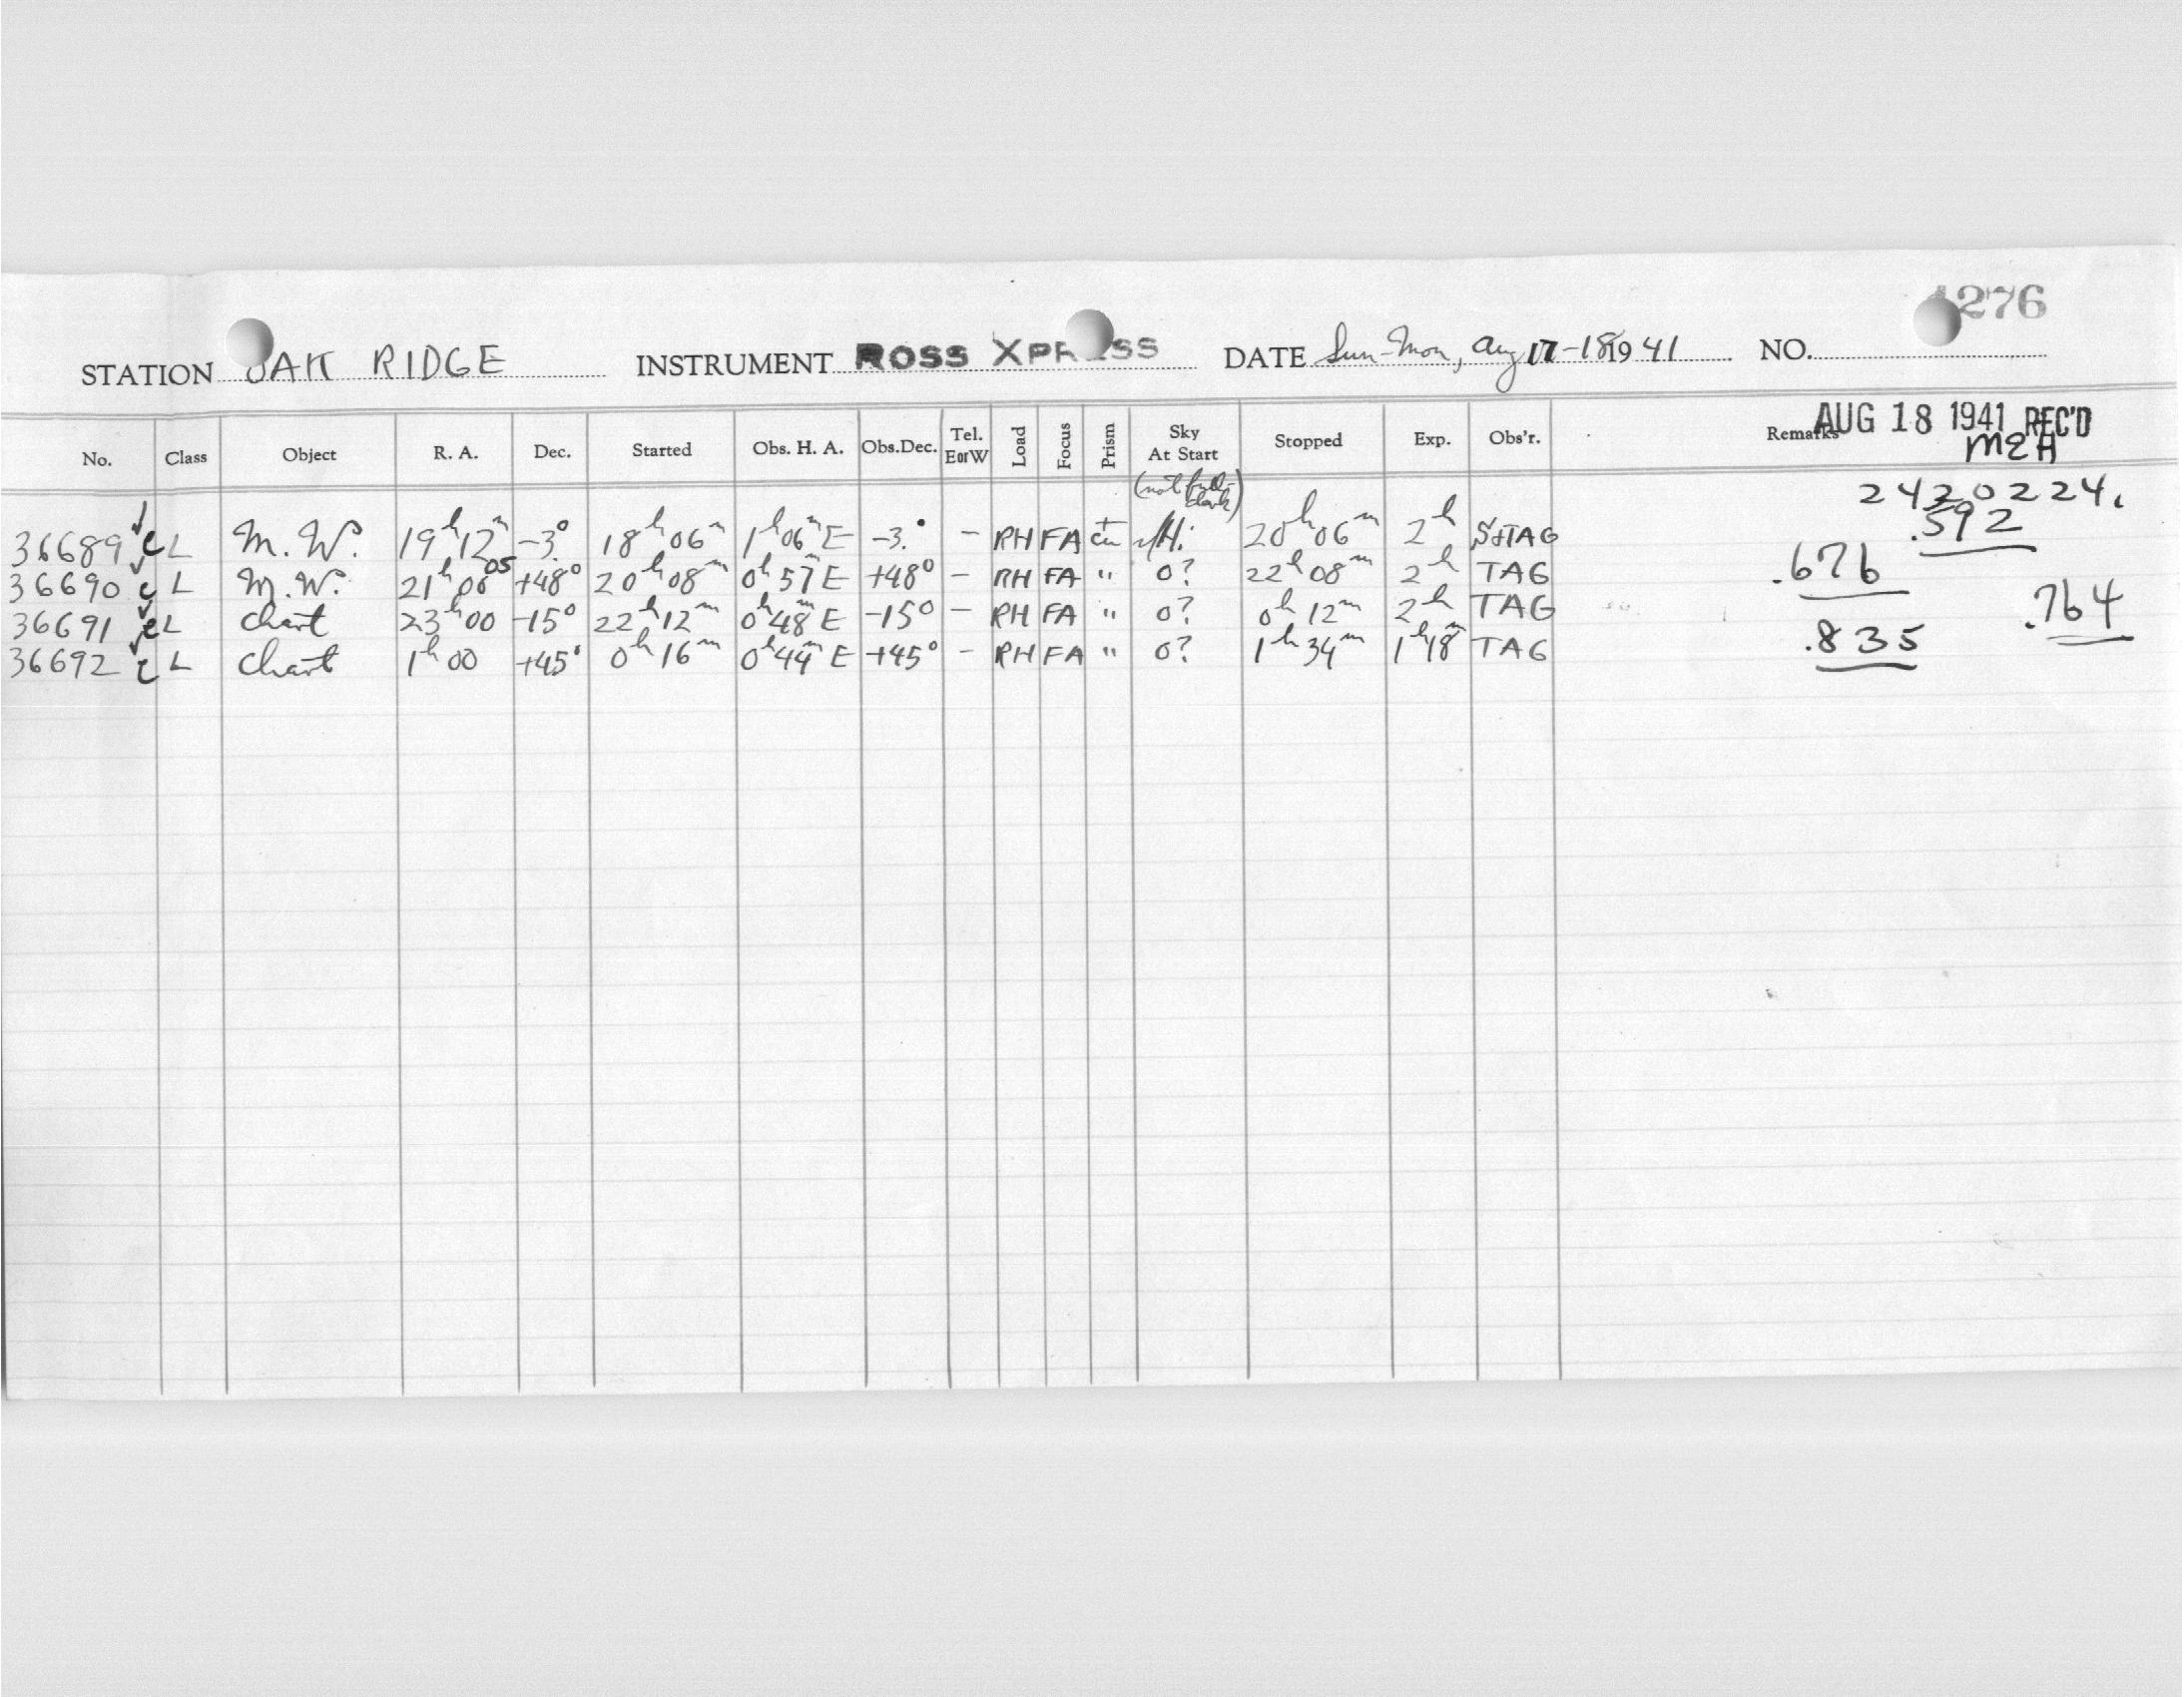 276
STATION OAK RIDGE INSTRUMENT ROSS XPRESS DATE Sun-Mon, Aug 17-18 1941 NO.
No. Class Object R. A. Dec. Started Obs. H. A. Obs.Dec. Tel. E or W Load Focus Prism Sky At Start Stopped Exp. Obs'r. Remarks AUG 18 1941 REC'D
MEH
(not full dark) 2430224.
36689 ✓ c L M. W. 19h 12m -3° 18h 06m 1h 06m E -3° - RH FA 20h 06m 2h S+TAG .592
36690 ✓ c L M. W. 21h 06 05 +48° 20h 08m 0h 57m E +48° - RH FA " 0? 22h 08m 2h TAG .676
36691 ✓ c L Chart 23h 00 -15° 22h 12m 0h 48m E -15° - RH FA " 0? 0h 12m 2h TAG .764
36692 ✓ c L Chart 1h 00 +45° 0h 16m 0h 44m E +45° - RH FA " 0? 1h 34m 1h 18m TAG .835